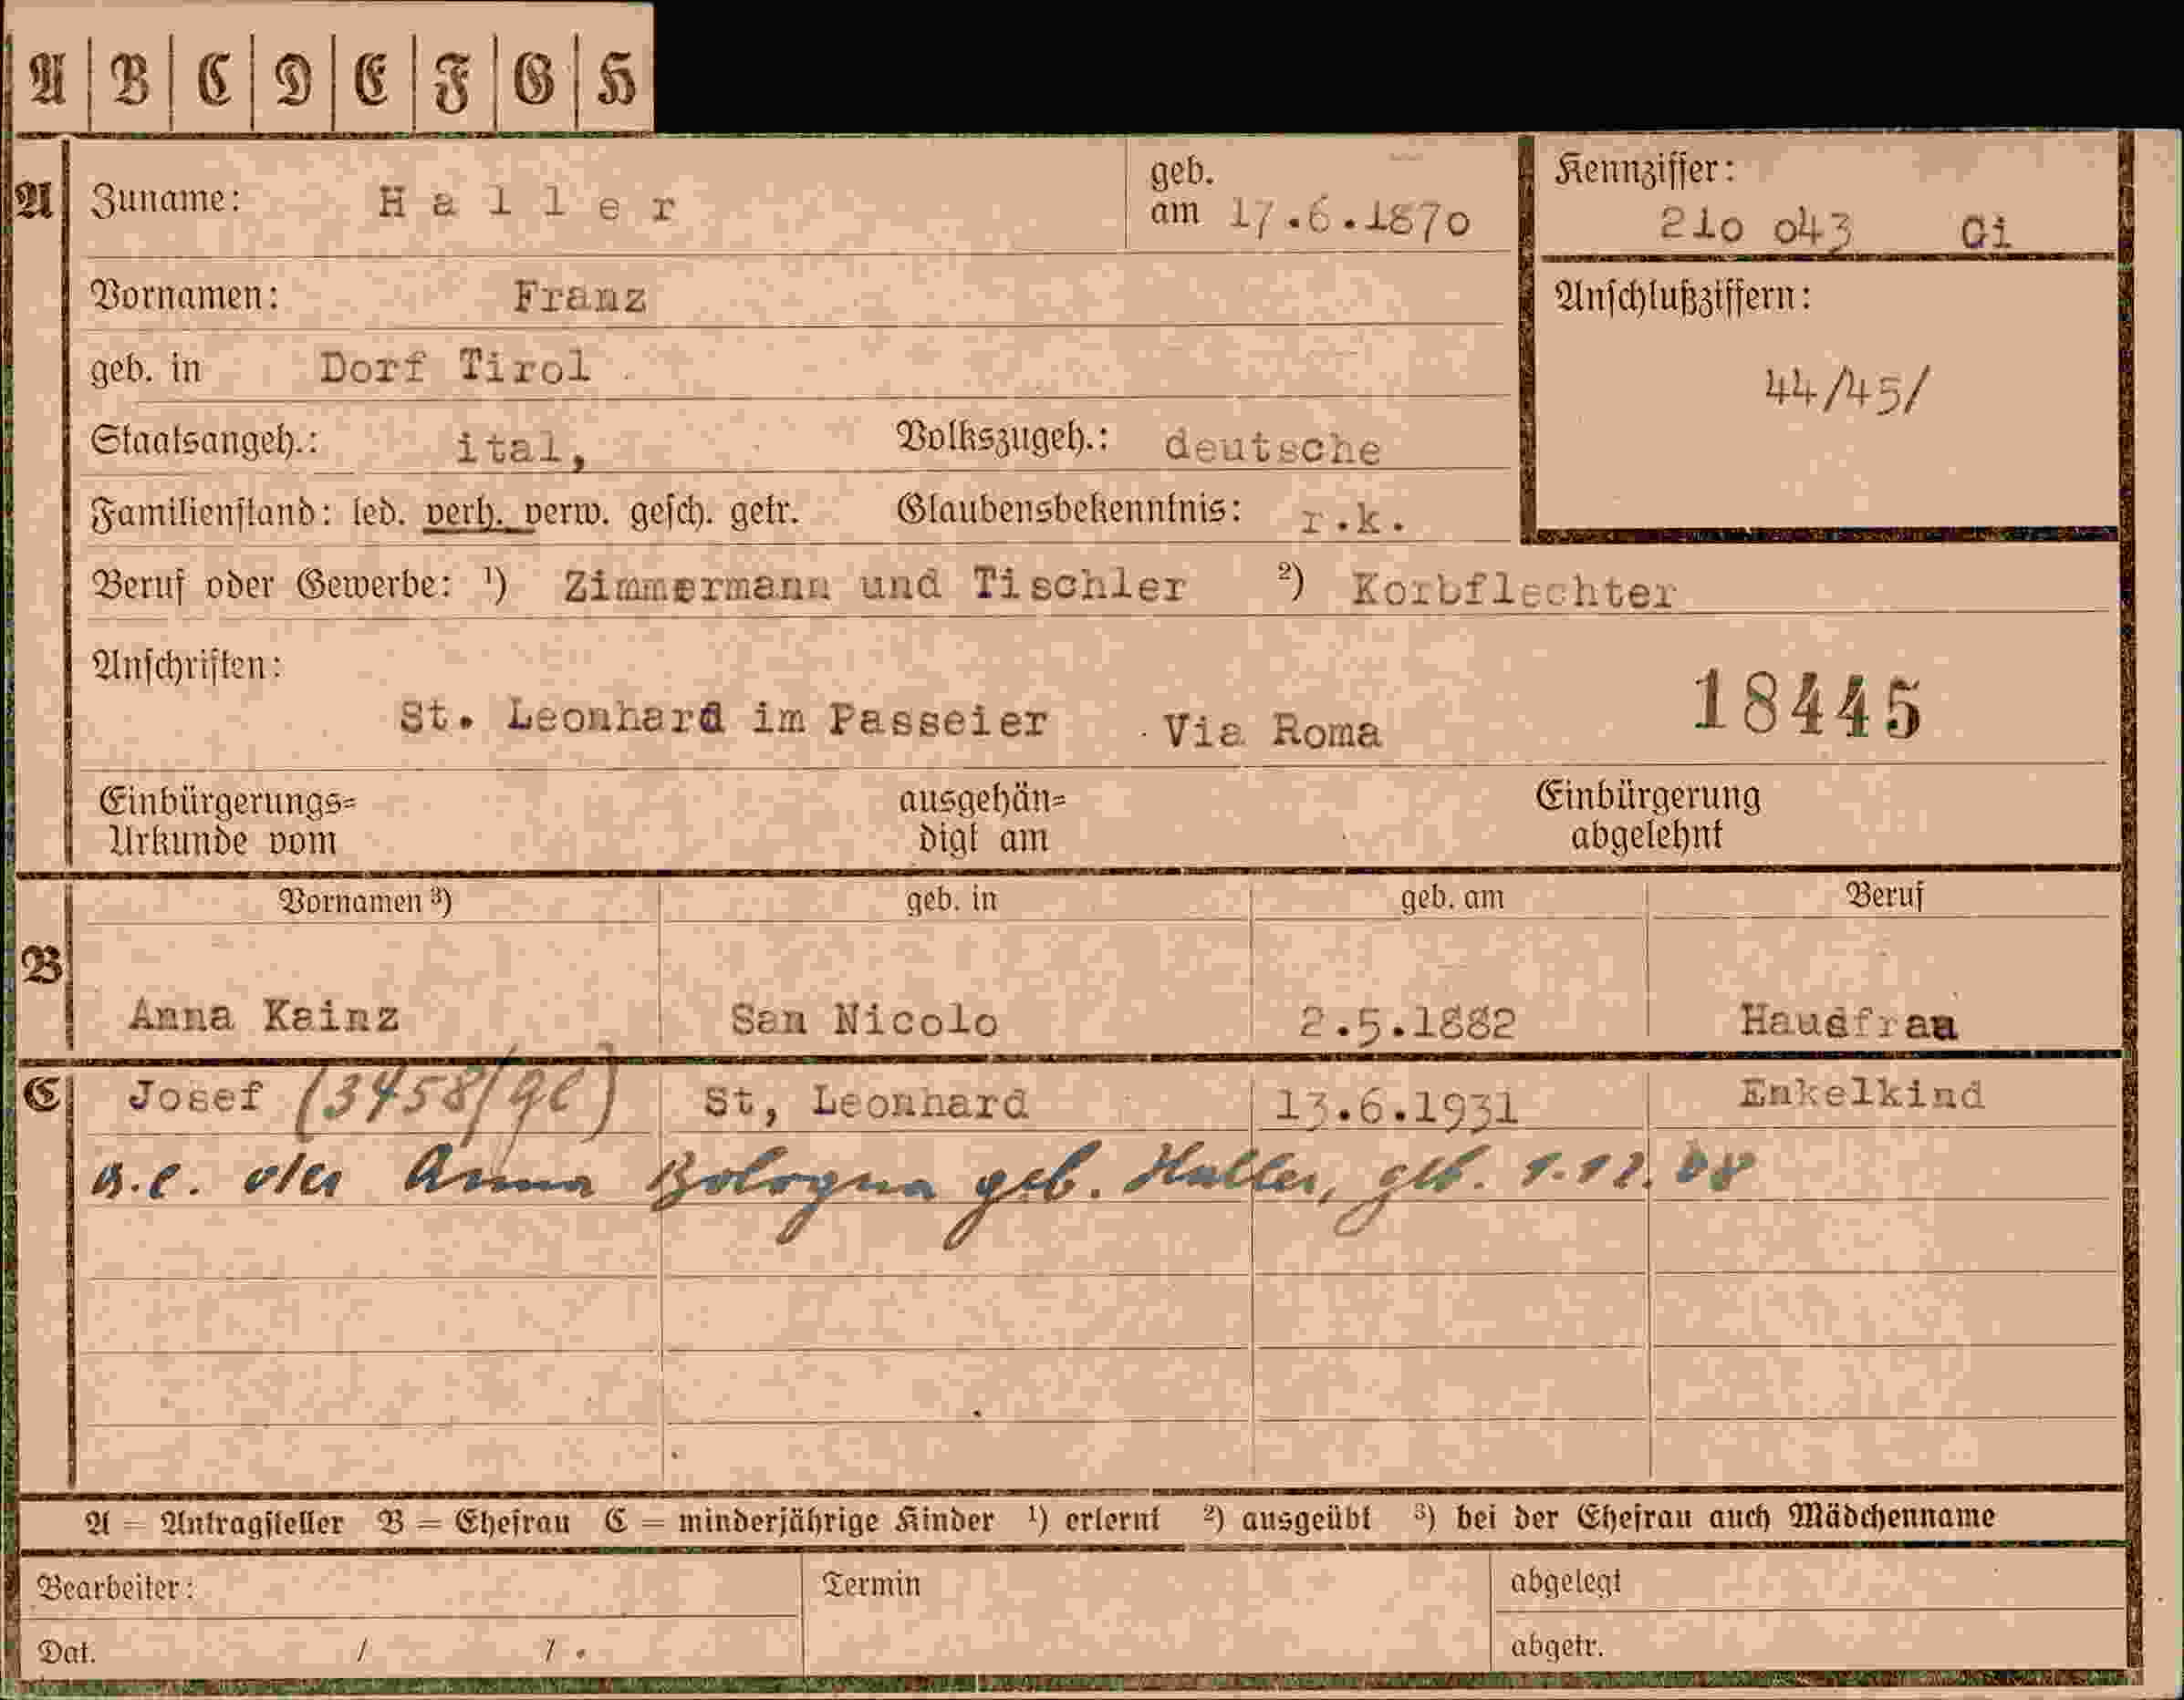 A B C D E F G H
A Zuname: Haller geb. am 17.6.1870 Kennziffer: 210 043 Gi
Vornamen: Franz Anschlußziffern:
geb. in Dorf Tirol 44/45/
Staatsangeh.: ital, Volkszugeh.: deutsche
Familienstand: led. verh. verw. gesch. getr. Glaubensbekenntnis: r.k.
Beruf oder Gewerbe: ¹) Zimmermann und Tischler ²) Korbflechter
Anschriften:
St. Leonhard im Passeier Via Roma 18445
Einbürgerungs= ausgehän= Einbürgerung
Urkunde vom digt am abgelehnt
Vornamen ³) geb. in geb. am Beruf
B
Anna Kainz San Nicolo 2.5.1882 Hausfrau
C Josef (3458/ge) St, Leonhard 13.6.1931 Enkelkind
Anna Bologna geb. Haller, geb. 1.12.08
A = Antragsteller B = Ehefrau C = minderjährige Kinder ¹) erlernt ²) ausgeübt ³) bei der Ehefrau auch Mädchenname
Bearbeiter: Termin abgelegt
Dat. / / . abgetr.